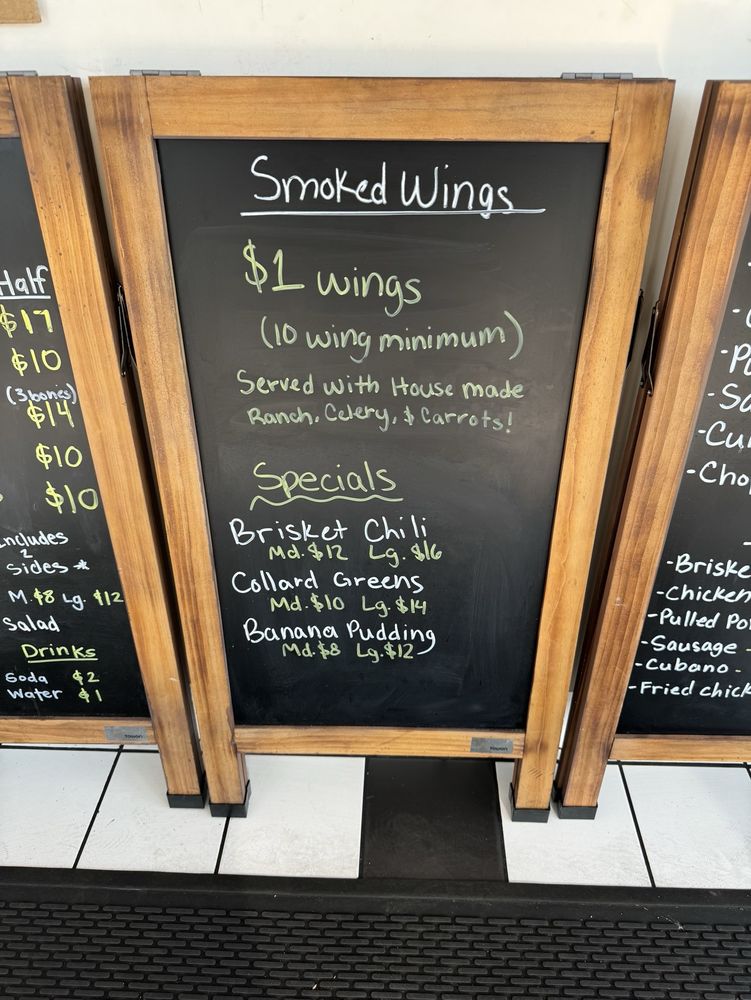 Half
$17
$10
(3 bones)
$14
$10
$10
includes
2
sides *
M. $8 Lg. $12
Salad
Drinks
Soda $2
Water $1
Smoked Wings
$1 wings
(10 wing minimum)
Served with House made
Ranch, Celery, & Carrots!
Specials
Brisket Chili
Md. $12 Lg. $16
Collard Greens
Md. $10 Lg. $14
Banana Pudding
Md. $8 Lg. $12
-Chicken
-Sausage -
-Cubano -
-Fried